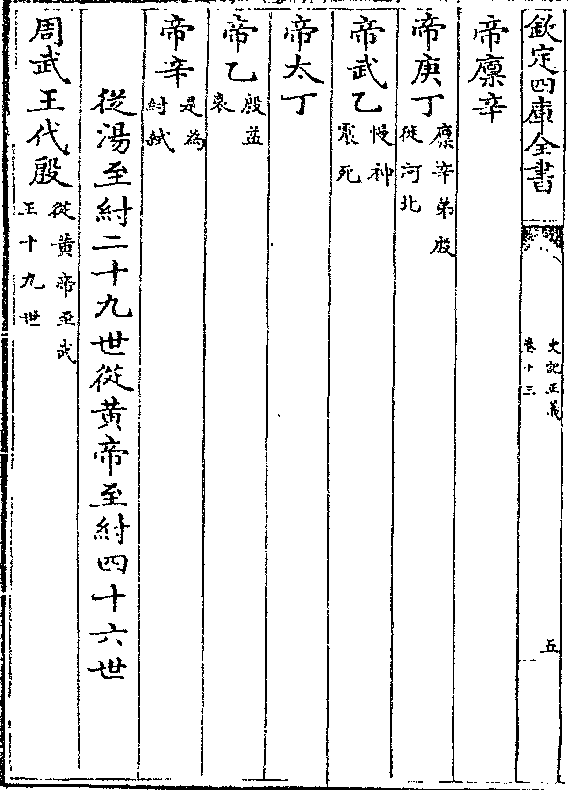 欽定四庫全書
史記正義
卷十三
五
帝廩辛
帝庚丁廩辛弟殷徙河北
帝武乙慢神震死
帝太丁
帝乙殷益衰
帝辛是為紂弑
從湯至紂二十九世從黄帝至紂四十六世
周武王代殷從黄帝至武王十九世